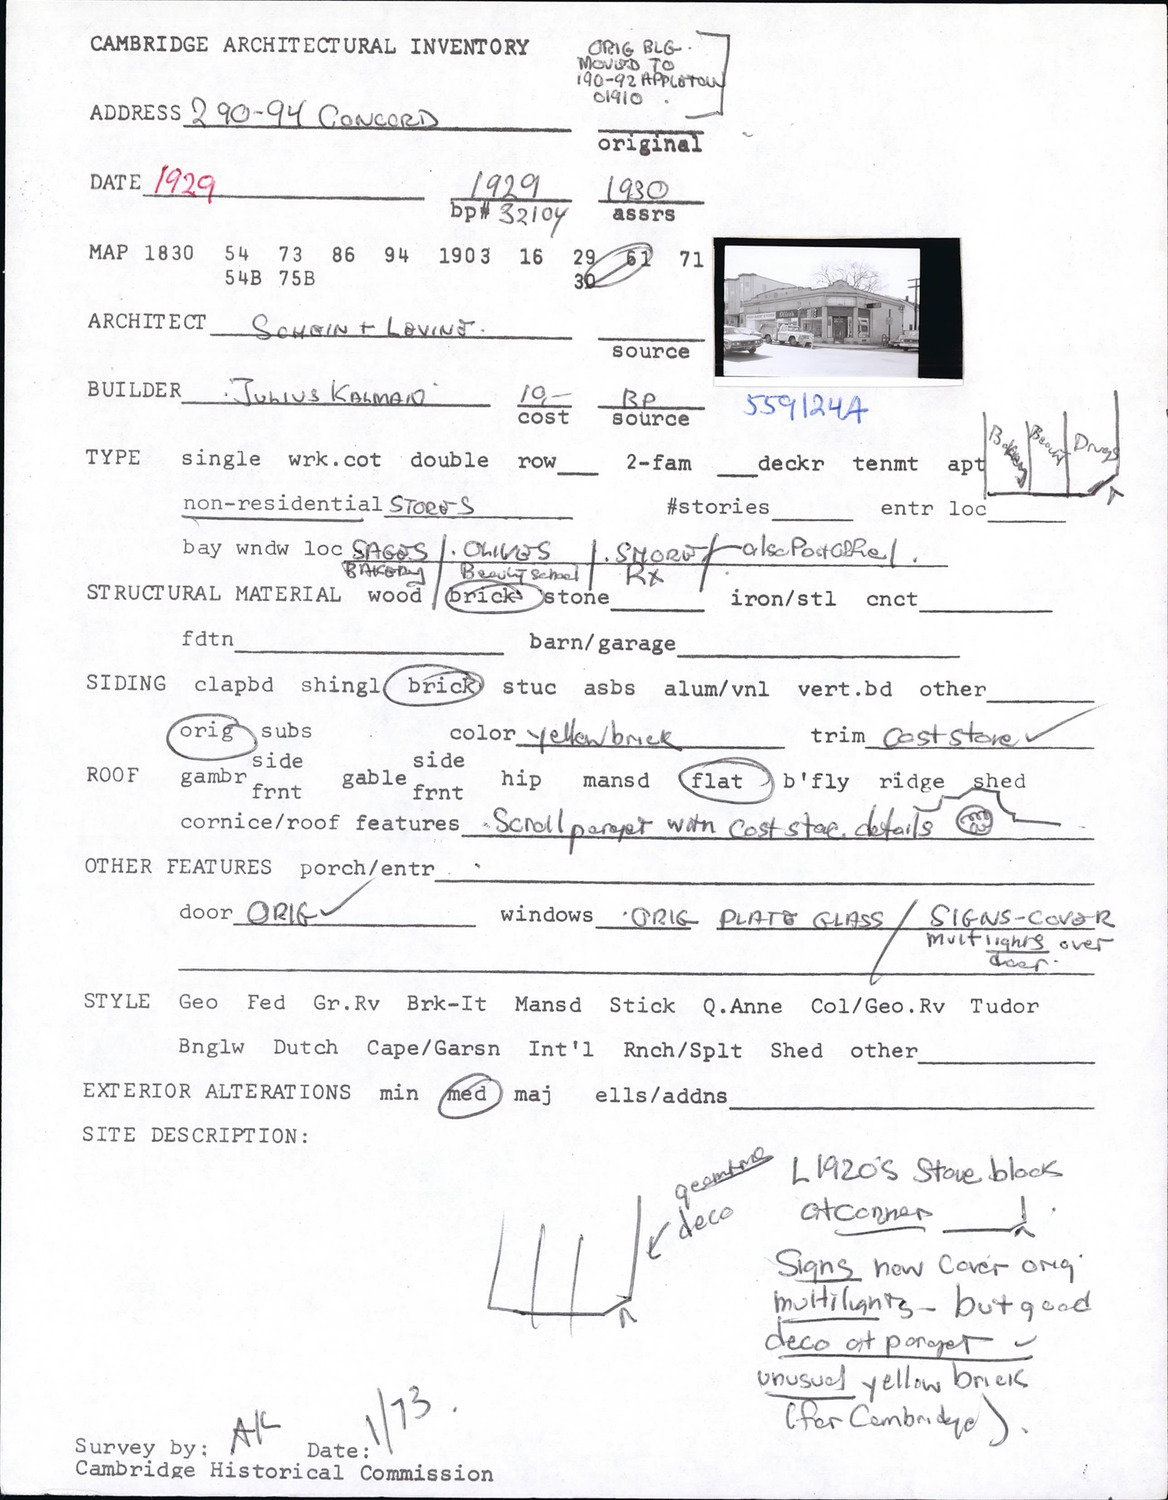 CAMBRIDGE ARCHITECTURAL INVENTORY
ORIG BLG.
MOVED TO
190-92 APPLETON
01910
ADDRESS 290-94 CONCORD
original
DATE 1929 1929 1930
bp# 32104 assrs
MAP 1830 54 73 86 94 1903 16 29 61 71
54B 75B 30
ARCHITECT SCHEIN + LEVINE.
source
BUILDER JULIUS KALMAN 10,- BP
cost source
559124A
Bakery Beauty Drugs
TYPE single wrk.cot double row___ 2-fam ___deckr tenmt apt
non-residential STORES #stories______ entr loc______
bay wndw loc SAGES / OLIVES / SHORE / also Post Office /
BAKERY Beauty School RX
STRUCTURAL MATERIAL wood brick stone_______ iron/stl cnct________
fdtn____________________ barn/garage____________________
SIDING clapbd shingl brick stuc asbs alum/vnl vert.bd other________
orig subs color yellow brick trim cast stone ✓
ROOF gambr side frnt gable side frnt hip mansd flat b'fly ridge shed
cornice/roof features Scroll parapet with cast stone details
OTHER FEATURES porch/entr
door ORIG ✓ windows ORIG PLATE GLASS / SIGNS-COVER
multlights over
door.
STYLE Geo Fed Gr.Rv Brk-It Mansd Stick Q.Anne Col/Geo.Rv Tudor
Bnglw Dutch Cape/Garsn Int'l Rnch/Splt Shed other______________
EXTERIOR ALTERATIONS min med maj ells/addns
SITE DESCRIPTION:
deco
L1920's Store block
at corner
Signs now cover orig
multilights - but good
deco at parapet ✓
unusual yellow brick
(for Cambridge).
Survey by: AK Date: 1/73.
Cambridge Historical Commission